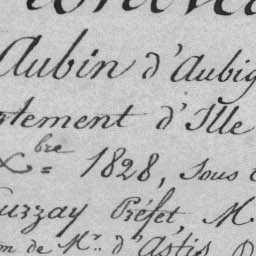 Aubin d'Aubig
rtement d'Ille
Xbre = 1828, Sous
uzzay Préfet, M.
on de Mr. d'Astis